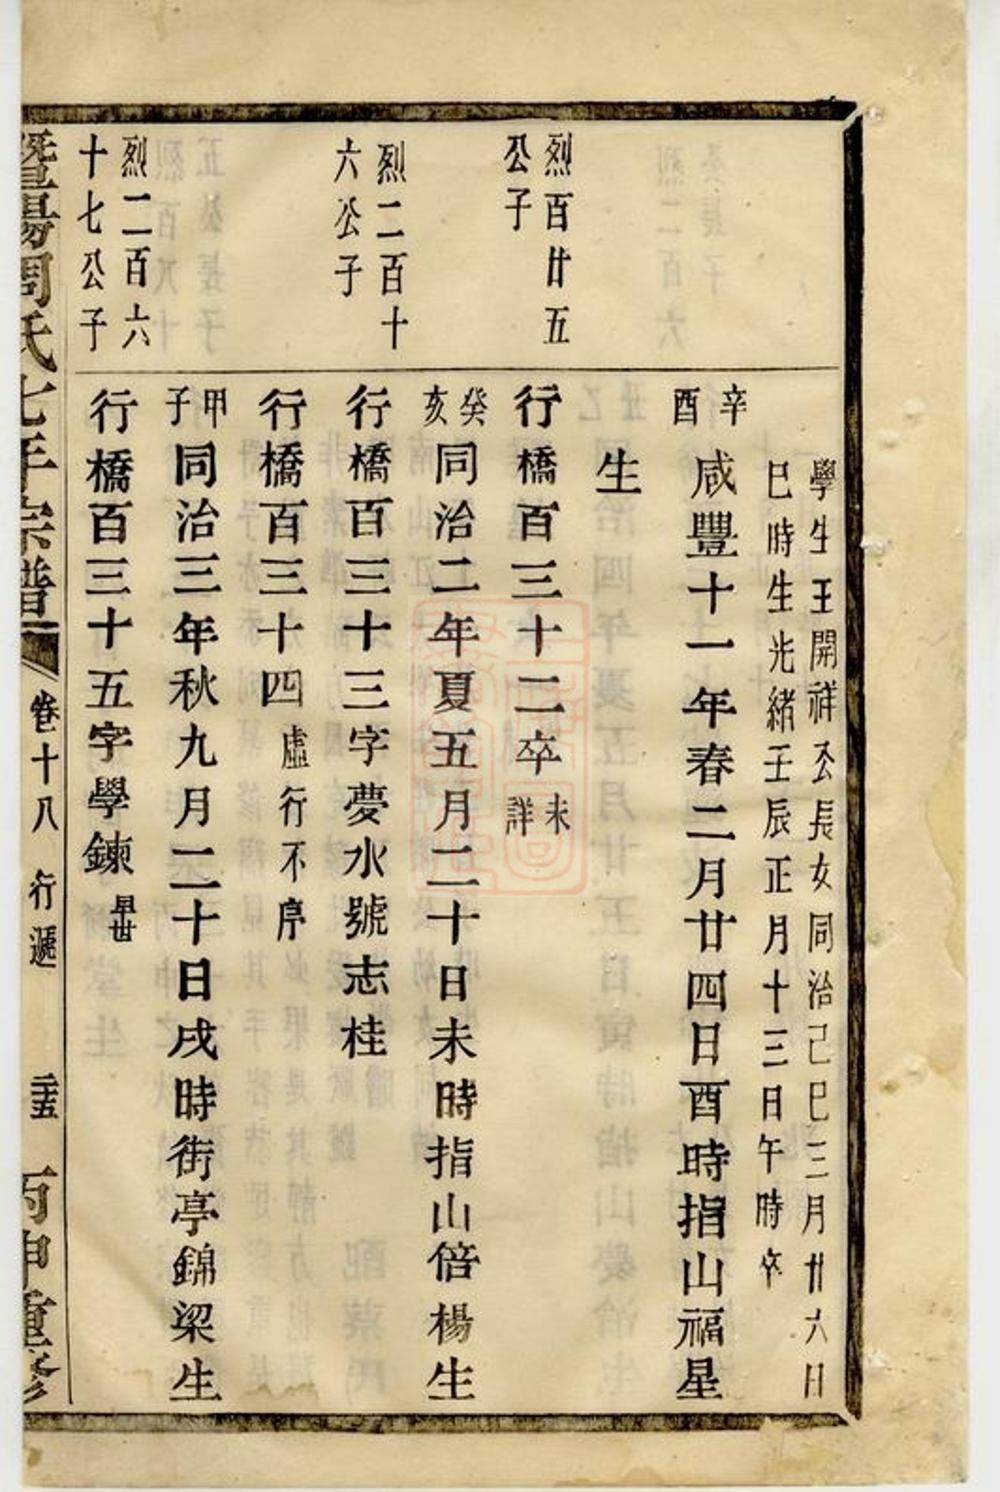 學生王開祥公長女同治己巳三月廿六日
巳時生光緒壬辰正月十三日午時卒
辛酉
咸豐十一年春二月廿四日酉時指山福星
生
烈百廿五
公子
行橋百三十二卒未詳
癸亥
同治二年夏五月二十日未時指山倍楊生
烈二百十
六公子
行橋百三十三字夢水號志桂
行橋百三十四虛行不序
甲子
同治三年秋九月二十日戌時街亭錦梁生
烈二百六
十七公子
行橋百三十五字學鍊早世
暨陽周氏七年宗譜 卷十八 行遞 二十五 丙申重修